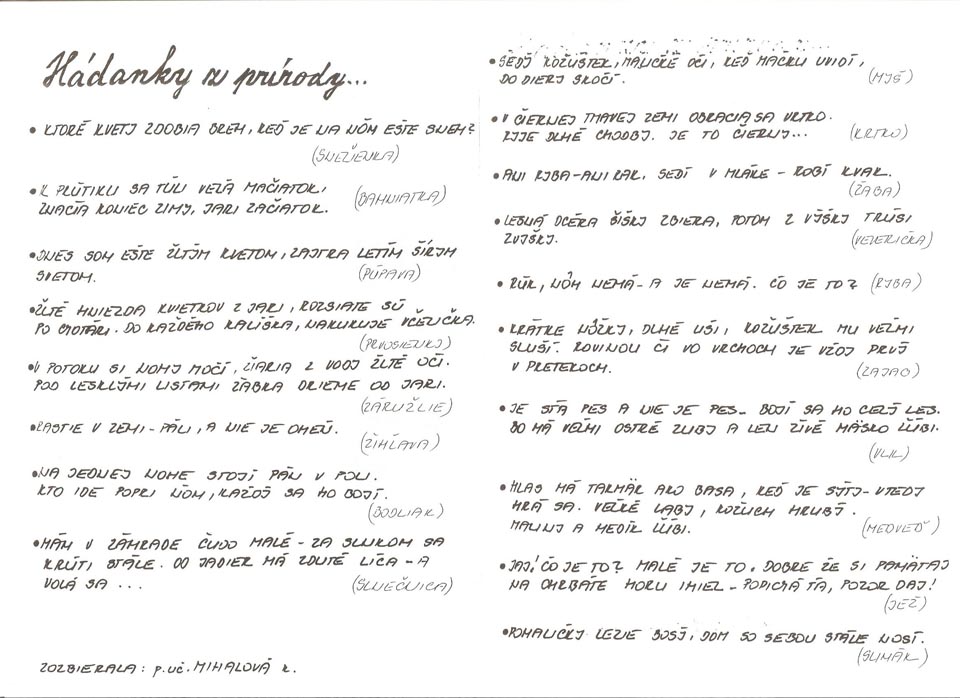 Hádanky z prírody...
• KTORÉ KVETY ZDOBIA BREH, KEĎ JE NA ŇOM EŠTE SNEH?
(SNEŽIENKA)
• K PRÚTIKU SA TÚLI VEĽA MAČIATOK,
ZNAČIA KONIEC ZIMY, JARI ZAČIATOK.
(BAHNIATKA)
• DNES SOM EŠTE ŽLTÝM KVETOM, ZAJTRA LETÍM ŠÍRYM
SVETOM.
(PÚPAVA)
• ŽLTÉ HVIEZDA KVIETKOV Z JARI, ROZSIATE SÚ
PO CHOTÁRI. DO KAŽDÉHO KALIŠKA, NAKUKUJE VČELIČKA.
(PRVOSIENKY)
• V POTOKU SI NOHY MOČÍ, ŽIARIA Z VODY ŽLTÉ OČI.
POD LESKLÝMI LISTAMI ŽABKA DRIEME OD JARI.
(ZÁRUŽLIE)
• RASTIE V ZEMI - PÁLI, A NIE JE OHEŇ.
(ŽIHĽAVA)
• NA JEDNEJ NOHE STOJÍ PÁN V POLI.
KTO IDE POPRI ŇOM, KAŽDÝ SA HO BOJÍ.
(BODLIAK)
• MÁM V ZÁHRADE ČUDO MALÉ - ZA SLNKOM SA
KRÚTI STÁLE. OD JADIER MÁ ŽLTÉ LÍCA - A
VOLÁ SA ...
(SLNEČNICA)
ZOZBIERALA: p. uč. MIHALOVÁ K.
• ŠEDÝ KOŽÚŠTEK, MALIČKÉ OČI, KEĎ MAČKU UVIDÍ,
DO DIERY SKOČÍ.
(MYŠ)
• V ČIERNEJ TMAVEJ ZEMI OBRACIA SA VRTKO.
RYJE DLHÉ CHODBY. JE TO ČIERNY...
(KRTKO)
• ANI RYBA - ANI RAK, SEDÍ V MLÁKE - ROBÍ KVAK.
(ŽABA)
• LESNÁ DCÉRA ŠIŠKY ZBIERA, POTOM Z VÝŠKY TRÚSI
ZVYŠKY.
(VEVERIČKA)
• KŮŇ, NŮH NEMÁ - A JE NEMÁ. ČO JE TO? (RYBA)
• KRÁTKE NÔŽKY, DLHÉ UŠI, KOŽÚŠTEK MU VEĽMI
SLUŠÍ. ROVINOU ČI VO VRCHOCH JE VŽDY PRVÝ
V PRETEKOCH.
(ZAJAC)
• JE STÁ PES A NIE JE PES - BOJÍ SA HO CELÝ LES.
BO MÁ VEĽMI OSTRÉ ZUBY A LEN ŽIVÉ MÄSKO ĽÚBI.
(VLK)
• HLAS MÁ TAKMÄR AKO BASA, KEĎ JE SÝTY - VTEDY
HRÁ SA. VEĽKÉ LABY, KOŽUCH HRUBÝ.
MALINY A MEDÍK ĽÚBI.
(MEDVEĎ)
• JAJ! ČO JE TO? MALÉ JE TO. DOBRE ŽE SI PAMÄTAJ
NA CHRBÁTE HORU IHIEL - POPICHÁ ŤA, POZOR DAJ!
(JEŽ)
• POMALIČKY LEZIE BOSÝ, DOM SO SEBOU STÁLE NOSÍ.
(SLIMÁK)